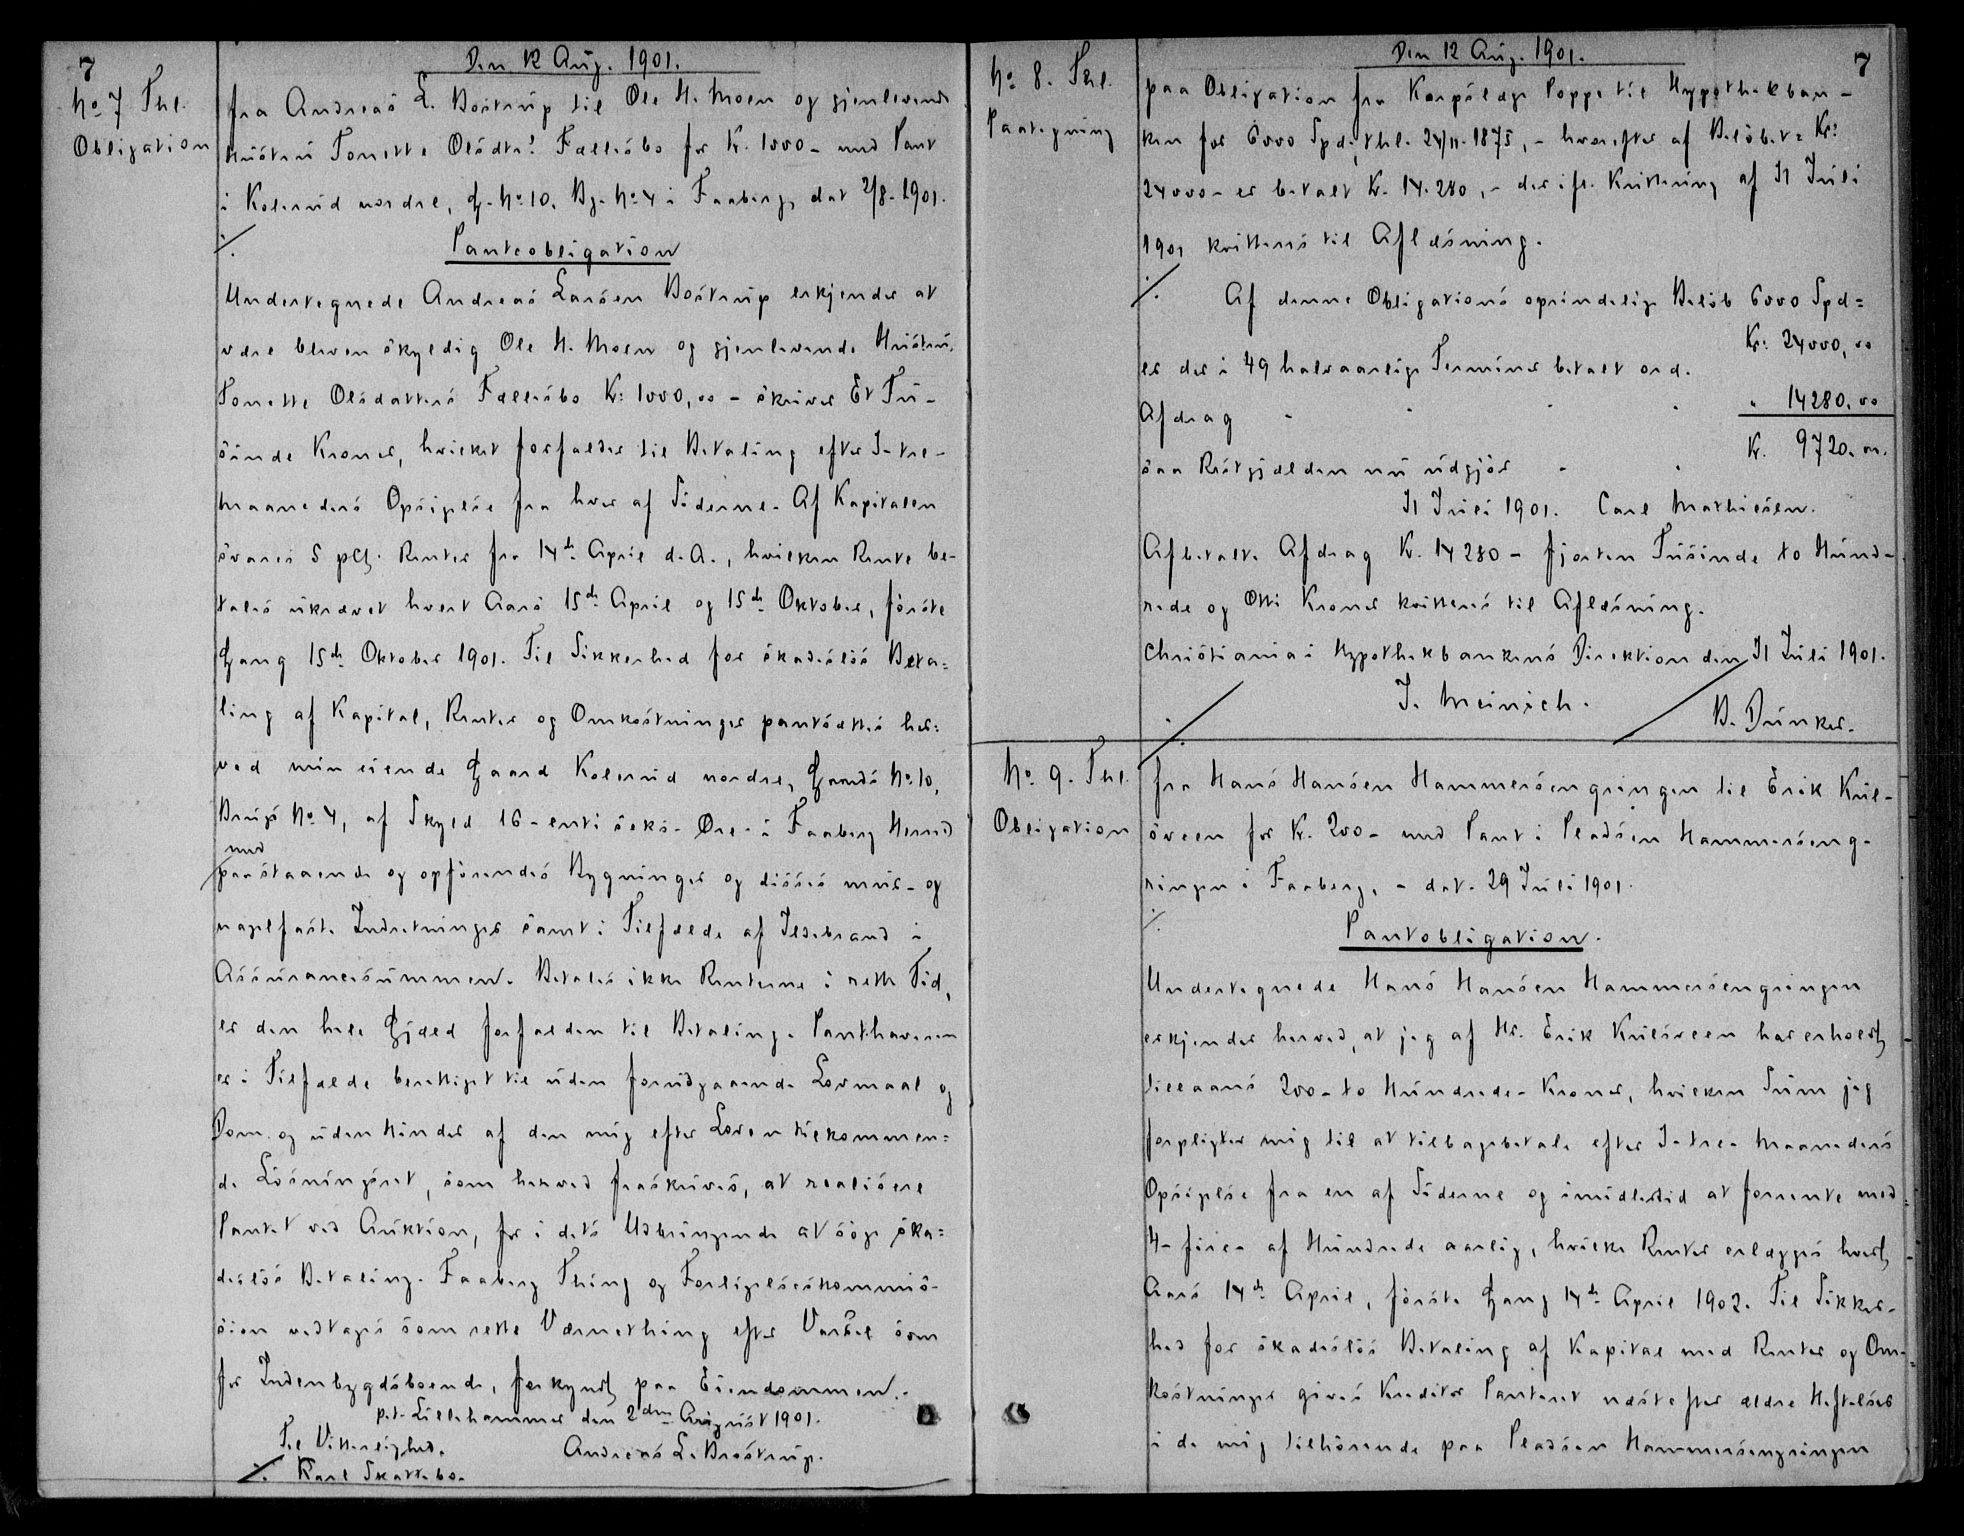 7
Den 12 Aug. 1901.
No 7 Thl.
Obligation
fra Andreas L. Bostrup til Ole H. Moen og gjenlevende
Hustru Tonette Olsdtrs Fællesbo for Kr. 1000 - med Pant
i Kolerud nordre, G. No 10. Bg. No 4 i Faaberg, dat 2/8-1901.
Panteobligation
Undertegnede Andreas Larsen Bostrup erkjender at
være bleven skyldig Ole H. Moen og gjenlevende Hustru
Tonette Olsdatters Fællesbo Kr: 1000,00 - skriver Et Tu-
sinde Kroner, hvilket forfalder til Betaling efter 3-tre-
Maaneders Opsigelse fra hver af Siderne. Af Kapitalen
svares 5 pCt. Renter fra 14de April d. A., hvilken Rente be-
tales ukrævet hvert Aars 15de April og 15de Oktober, første
Gang 15de Oktober 1901. Til Sikkerhed for skadesløs Beta=
ling af Kapital, Renter og Omkostninger pantsættes her=
ved min eiende Gaard Kolerud nordre, Gaards No 10,
Brugs No 4, af Skyld 16-enti seks- Øre- i Faaberg Herred
med
paastaaende og opførendes Bygninger og disses mur- og
nagelfaste Indretninger samt i Tilfælde af Ildebrand i
Assurancesummen. Betales ikke Renterne i rette Tid,
er den hele Gjæld forfalden til Betaling. Panthaveren
er i Tilfælde berettiget til uden forudgaaende Lovmaal og
Dom og uden Hinder af den mig efter Loven tilkommen=
de Løsningsret, som herved fraskrives, at realisere
Pantet ved Auktion, for i dets Udbringende at søge ska=
desløs Betaling. Faaberg Thing og Forligelseskommis-
sion vedtages som rette Værnething efter Varsel som
for Indenbygdsboende, forkyndt paa Eiendommen.-
p.t. Lillehammer den 2den August 1901.
Til Vitterlighed.
Andreas L. Bostrup.
Karl Skattebo.
Den 12 Aug. 1901.
7
No 8. Thl.
Paategning
paa Obligation fra Korpslæge Poppe til Hypothekban-
ken for 6000 Spd. thl. 24/11-1875, - hvorefter af Beløbet = Kr:
24000- er betalt Kr. 14.280,- der ifl. Kvittering af 31 Juli
1901 kvitteres til Aflæsning.
Af denne Obligations oprindelige Beløb 6000 Spd=
Kr: 24000,00
er der i 49 halvaarlige Terminer betalt ord.
Afdrag - - - - " 14280.00
saa Restgjælden nu udgjør - - Kr. 9720.00.
31 Juli 1901. Carl Mathiesen.
Afbetalte Afdrag Kr. 14280 - fjorten Tusinde to Hund-
rede og Otti Kroner kvitteres til Aflæsning.
Christiania i Hypothekbankens Direktion den 31 Juli 1901.
J. Meinich.
B. Dunker.
No. 9. Thl.
Obligation
fra Hans Hansen Hammersengringen til Erik Kul-
sveen for Kr. 200- med Pant i Pladsen Hammerseng-
ringen i Faaberg, - dat. 29 Juli 1901.
Pantobligation.
Undertegnede Hans Hansen Hammersengringen
erkjender herved, at jeg af Hr. Erik Kulsveen har erholdt
tillaans 200-to Hundrede-Kroner, hvilken Sum jeg
forpligter mig til at tilbagebetale efter 3-tre- Maaneders
Opsigelse fra en af Siderne og imidlertid at forrente med
4-fire- af Hundrede aarlig, hvilke Renter erlægges hvert
Aars 14de April, første Gang 14de April 1902. Til Sikker-
hed for skadesløs Betaling af Kapital med Renter og Om-
kostninger gives Kreditor Panteret næst efter ældre Heftelser
i de mig tilhørende paa Pladsen Hammersengringen